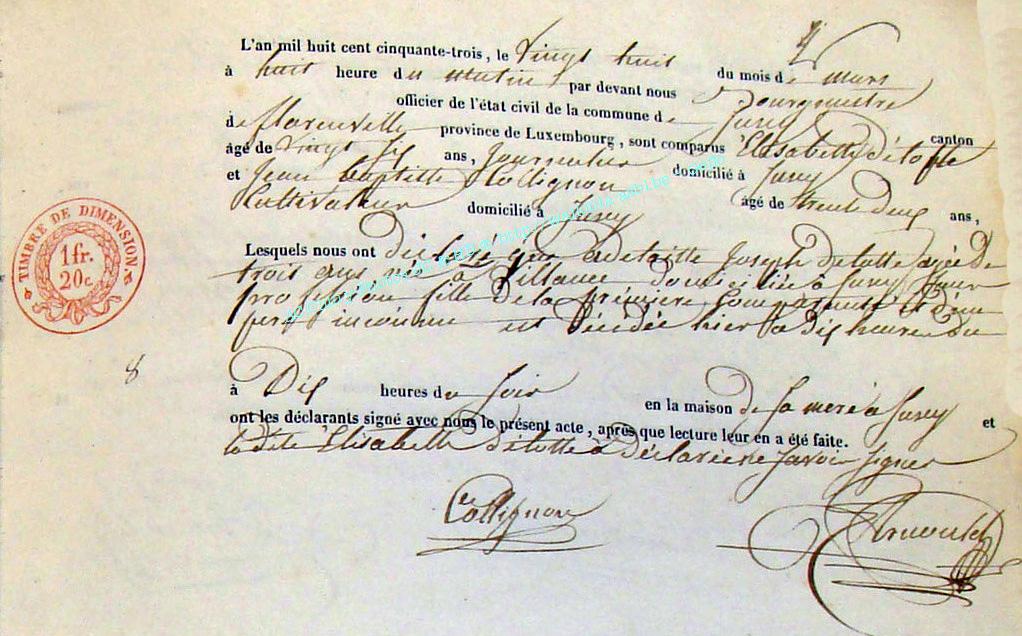 L'an mil huit cent cinquante-trois, le Vingt huit du mois de mars
à huit heure du matin par devant nous Bourgmestre
officier de l'état civil de la commune de Jusey
de florenville province de Luxembourg, sont comparus Elisabette détotte canton
âgé de Vingt six ans, Journalier domicilié à Jusey
et Jean Baptiste Collignon âgé de trente deux ans,
Cultivateur domicilié à Jusey
TIMBRE DE DIMENSION
1 fr.
20 c
Lesquels nous ont déclaré que adelaïtte Joseph detotte agée de
trois ans née à Villance domiciliée à Jusey sans
profession fille de la première Comparante et d'un
père inconnu est décédée hier à dix heures du
8
à Dix heures du Soir en la maison de sa mere à Jusey et
ont les déclarants signé avec nous le présent acte, après que lecture leur en a été faite.
la dite Elisabette détotte a déclaré ne savoir signer
Collignon